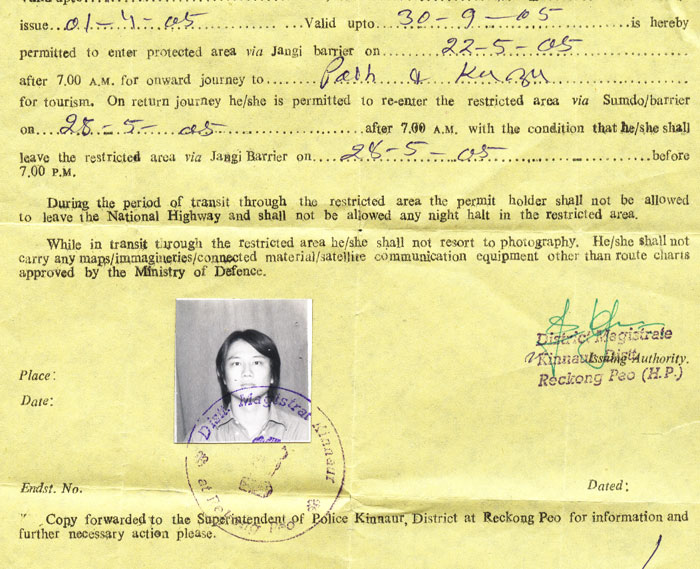 issue....01-4-05......Valid upto....30-9-05......is hereby
permitted to enter protected area via Jangi barrier on........22-5-05.......
after 7.00 A.M. for onward journey to.......
for tourism. On return journey he/she is permitted to re-enter the restricted area via Sumdo/barrier
on....28-5-05..............after 7.00 A.M. with the condition that he/she shall
leave the restricted area via Jangi Barrier on......28-5-05..............before
7.00 P.M.
During the period of transit through the restricted area the permit holder shall not be allowed
to leave the National Highway and shall not be allowed any night halt in the restricted area.
While in transit through the restricted area he/she shall not resort to photography. He/she shall not
carry any maps/immagineries/connected material/satellire communication equipment other than route charts
approved by the Ministry of Defence.
District Magistrate
Place:
Kinnaur Distt.
Issuing Authority.
Reckong Peo (H.P.)
Date:
Distt. Magistrat Kinnaur
at Peo
Endst. No.
Dated:
Copy forwarded to the Superintendent of Police Kinnaur, District at Reckong Peo for information and
further necessary action please.